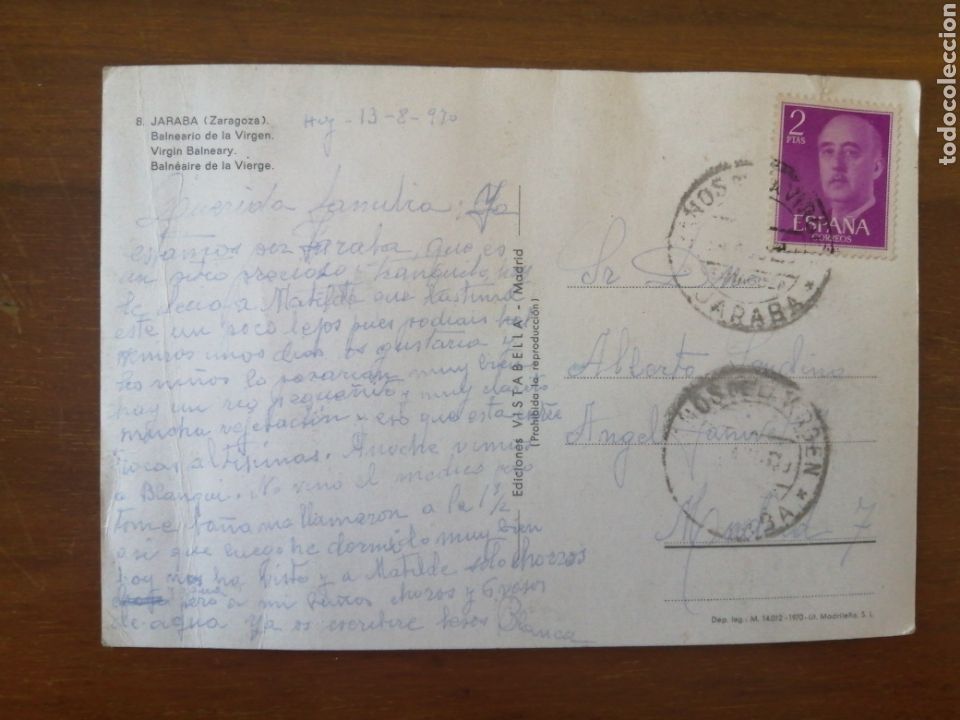 8. JARABA (Zaragoza).
Balneario de la Virgen.
Virgin Balneary.
Balnéaire de la Vierge.
Hoy - 13-8-970
Querida familia: Ya
estamos en Jaraba, que es
un poco precioso y tranquilo,
a Matilde que lastima
este un poco lejos pues podian
unos dias, os gustaria y
los niños lo pasarian muy bien
hay un rio pequeñito y muy
mucha vegetacion y eso que esta entre
rocas altisimas. Anoche vimos
a Blanqui. No vino el medico
tome baña me llamaron a la 1 1/2
asi que luego he dormido muy bien
hoy nos ha visto y a Matilde solo chorros
pero a mi baños choros y 6 vasos
de agua Ya os escribire besos Blanca
Ediciones VISTABELLA - Madrid
(Prohibida la reproducción)
2
PTAS
ESPAÑA
CORREOS
JARABA
Sr D.
Alberto
Angel
Madrid 7
Dep. leg.: M. 14.012 - 1970 - Lit. Madrileña, S. L.
todocoleccion